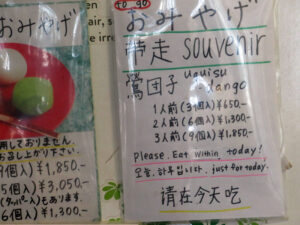 おみやげ
用しておりません。
お召し上がり下さい。
9個入) ¥1,850.-
5個入) ¥3,050.-
もあります。
6個入) ¥1,300.-
to go
おみやげ
帯走 souvenir
鶯団子 uguisu dango
1人前 (3個入) ¥650.-
2人前 (6個入) ¥1,300-
3人前 (9個入) ¥1,850.-
Please. Eat within today!
just for today.
请在今天吃